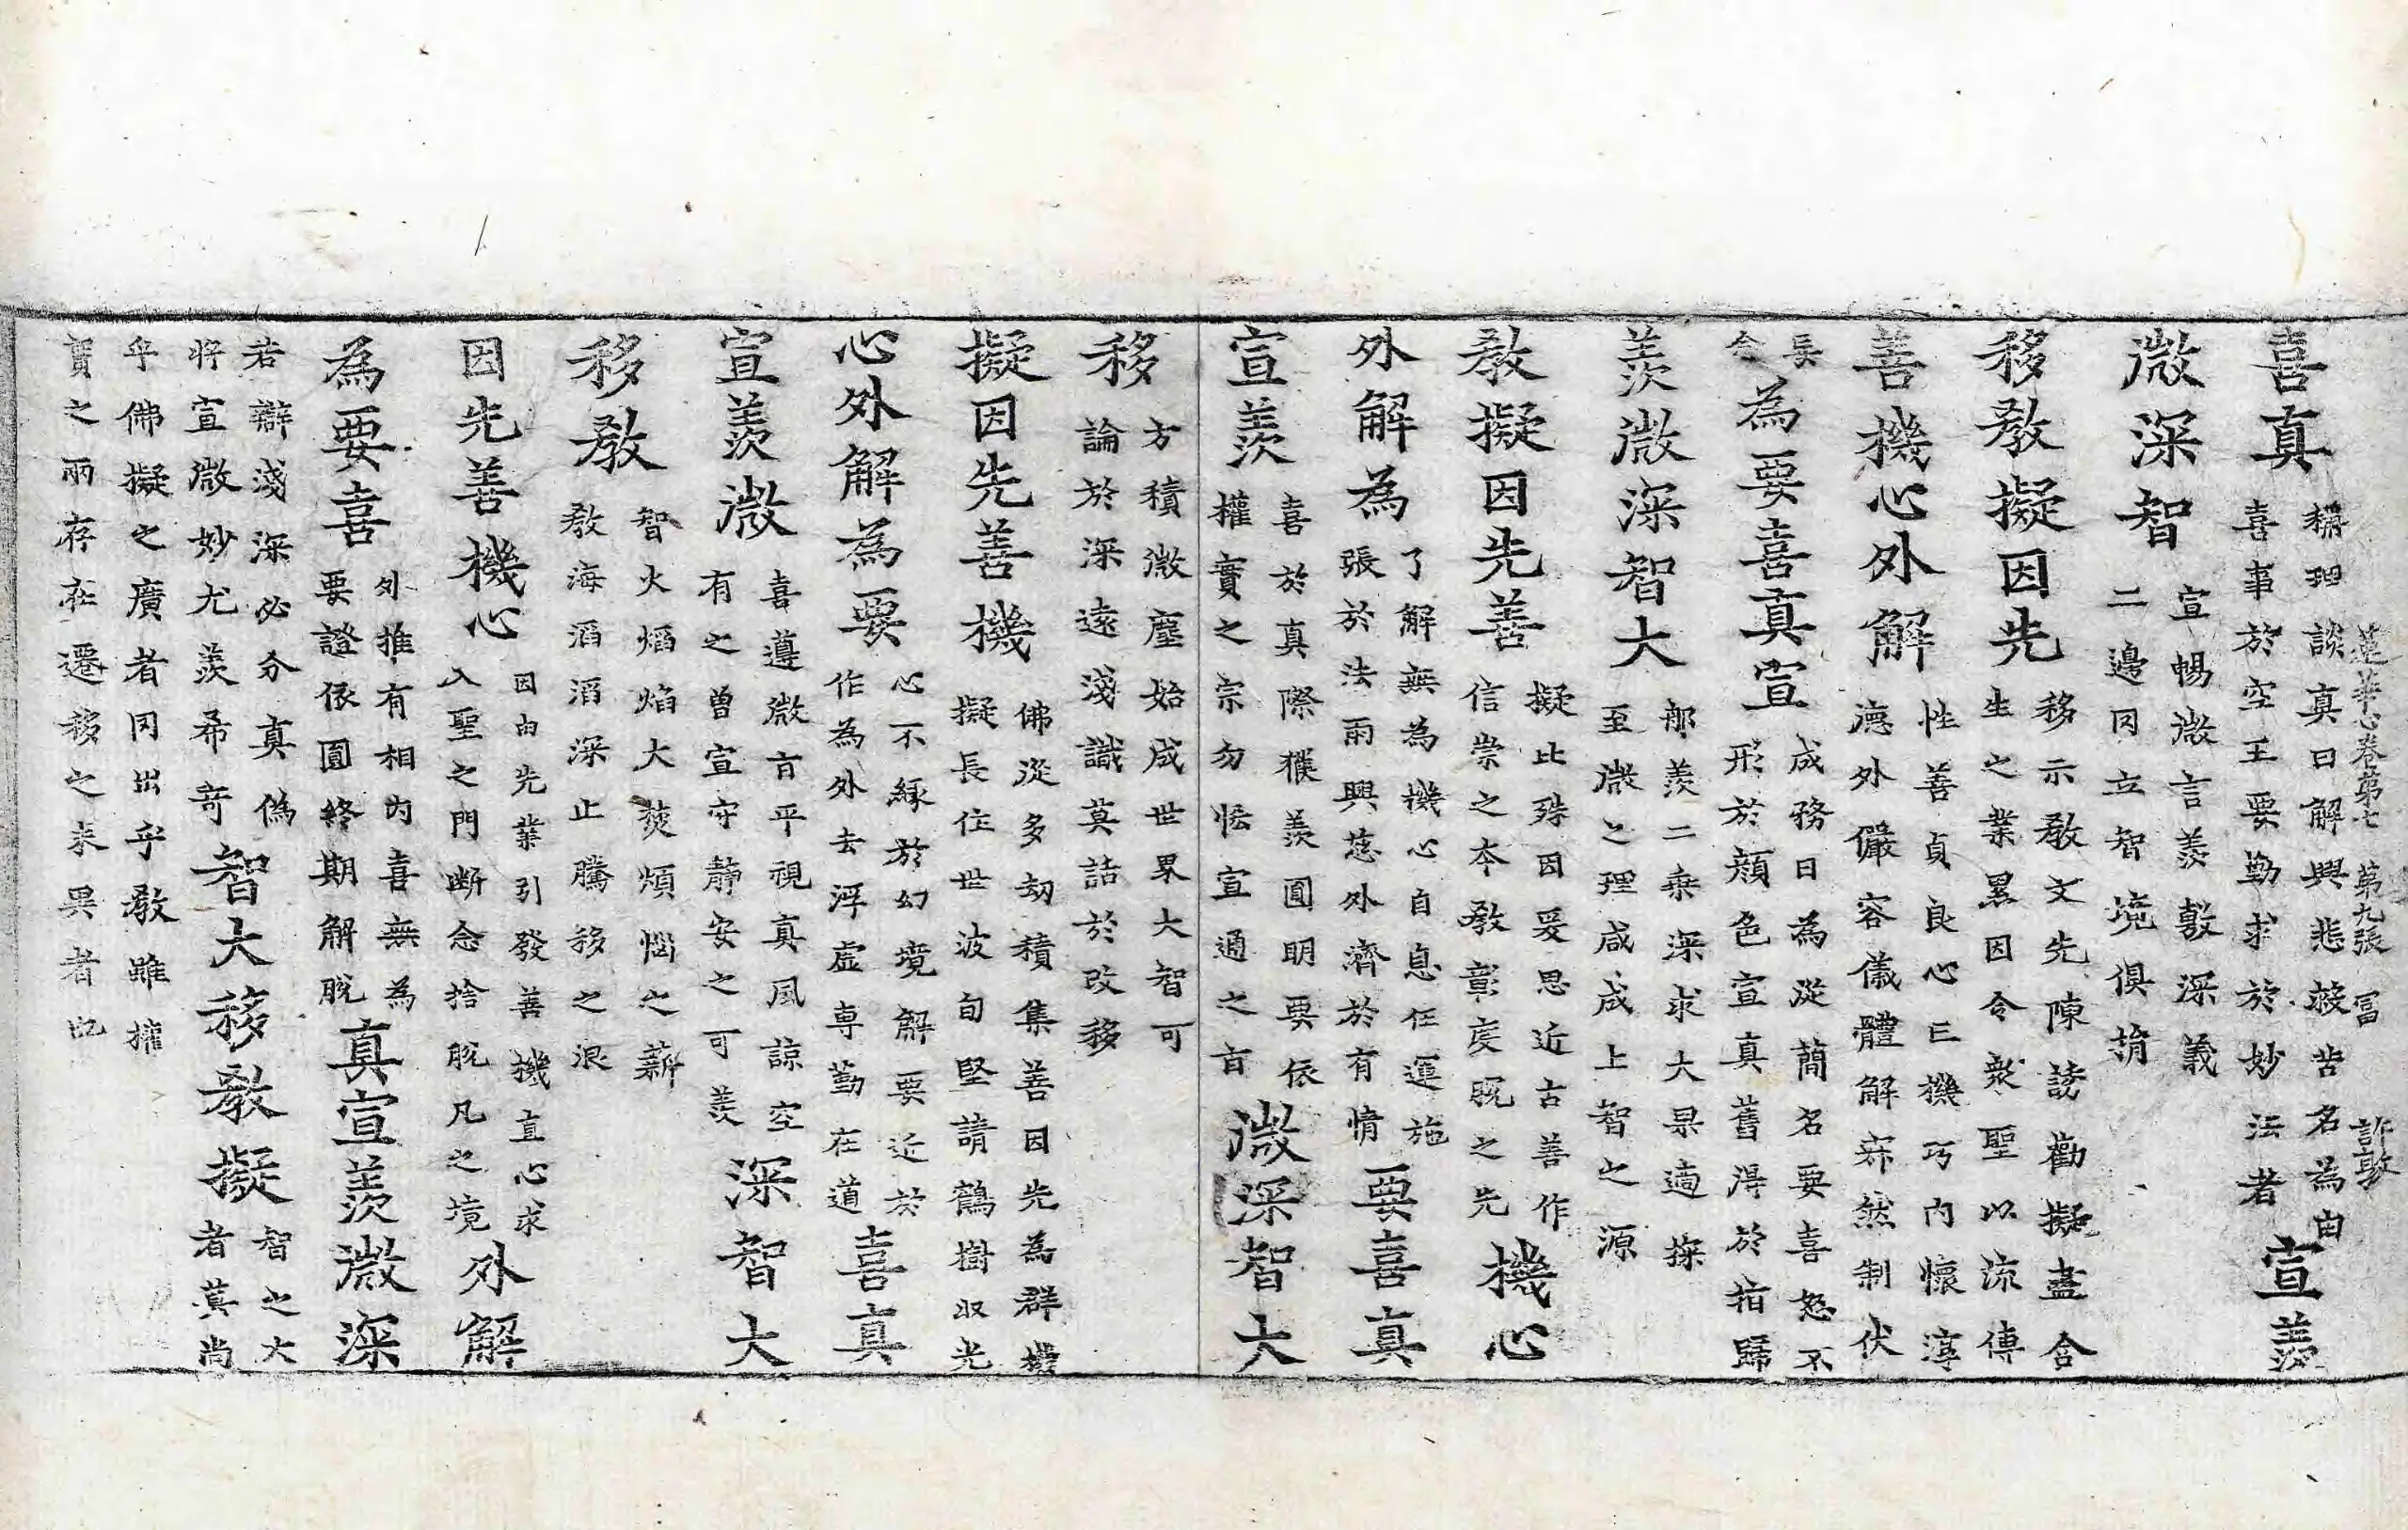 蓮華心卷第七 第九張 冨 許敦
喜真
稱理談真曰解興悲救苦名為由
喜事於空王要勤求於妙法者
宣羨
微深智
宣暢微言羨敷深義
二邊冈立智境俱捐
移教擬因先
移示教文先陳誘勸擬盡含
生之業累因令衆聖以流傳
善機心外解
性善貞良心亡機巧內懷淳
德外儼容儀體解寂然制伏
長
念
為要喜真宣
成務日為從簡名要喜怒不
形於顏色宣真舊淂於指歸
羨微深智大
郍羨二乘深求大果適探
至微之理咸成上智之源
教擬因先善
擬比殊因爰思近古善作
信崇之本教彰度脫之先
機心
外解為
了解無為機心自息任運施
張於法雨興慈外濟於有情
要喜真
宣羨
喜於真際獲羨圓明要依
權實之宗勿恡宣通之旨
微深智大
移
方積微塵始成世界大智可
論於深遠淺識莫話於改移
擬因先善機
佛從多劫積集善因先為群機
擬長住世波旬堅請鶴樹収光
心外解為要
心不緣於幻境解要近於
作為外去浮虛專勤在道
喜真
宣羨微
喜遵微旨平視真風諒空
有之曾宣守靜安之可羨
深智大
移教
智火熖焰大焚煩惱之薪
教海滔滔深止騰移之浪
因先善機心
因由先業引發善機直心求
入聖之門断念捨脫凡之境
外解
為要喜
外推有相内喜無為
要證依圓終期解脫
真宣羨微深
若辯淺深必分真偽
將宣微妙尤羨希竒
智大移教擬
智之大
者莫尚
乎佛擬之廣者冈出乎教雖權
實之兩存在遷移之未異者也